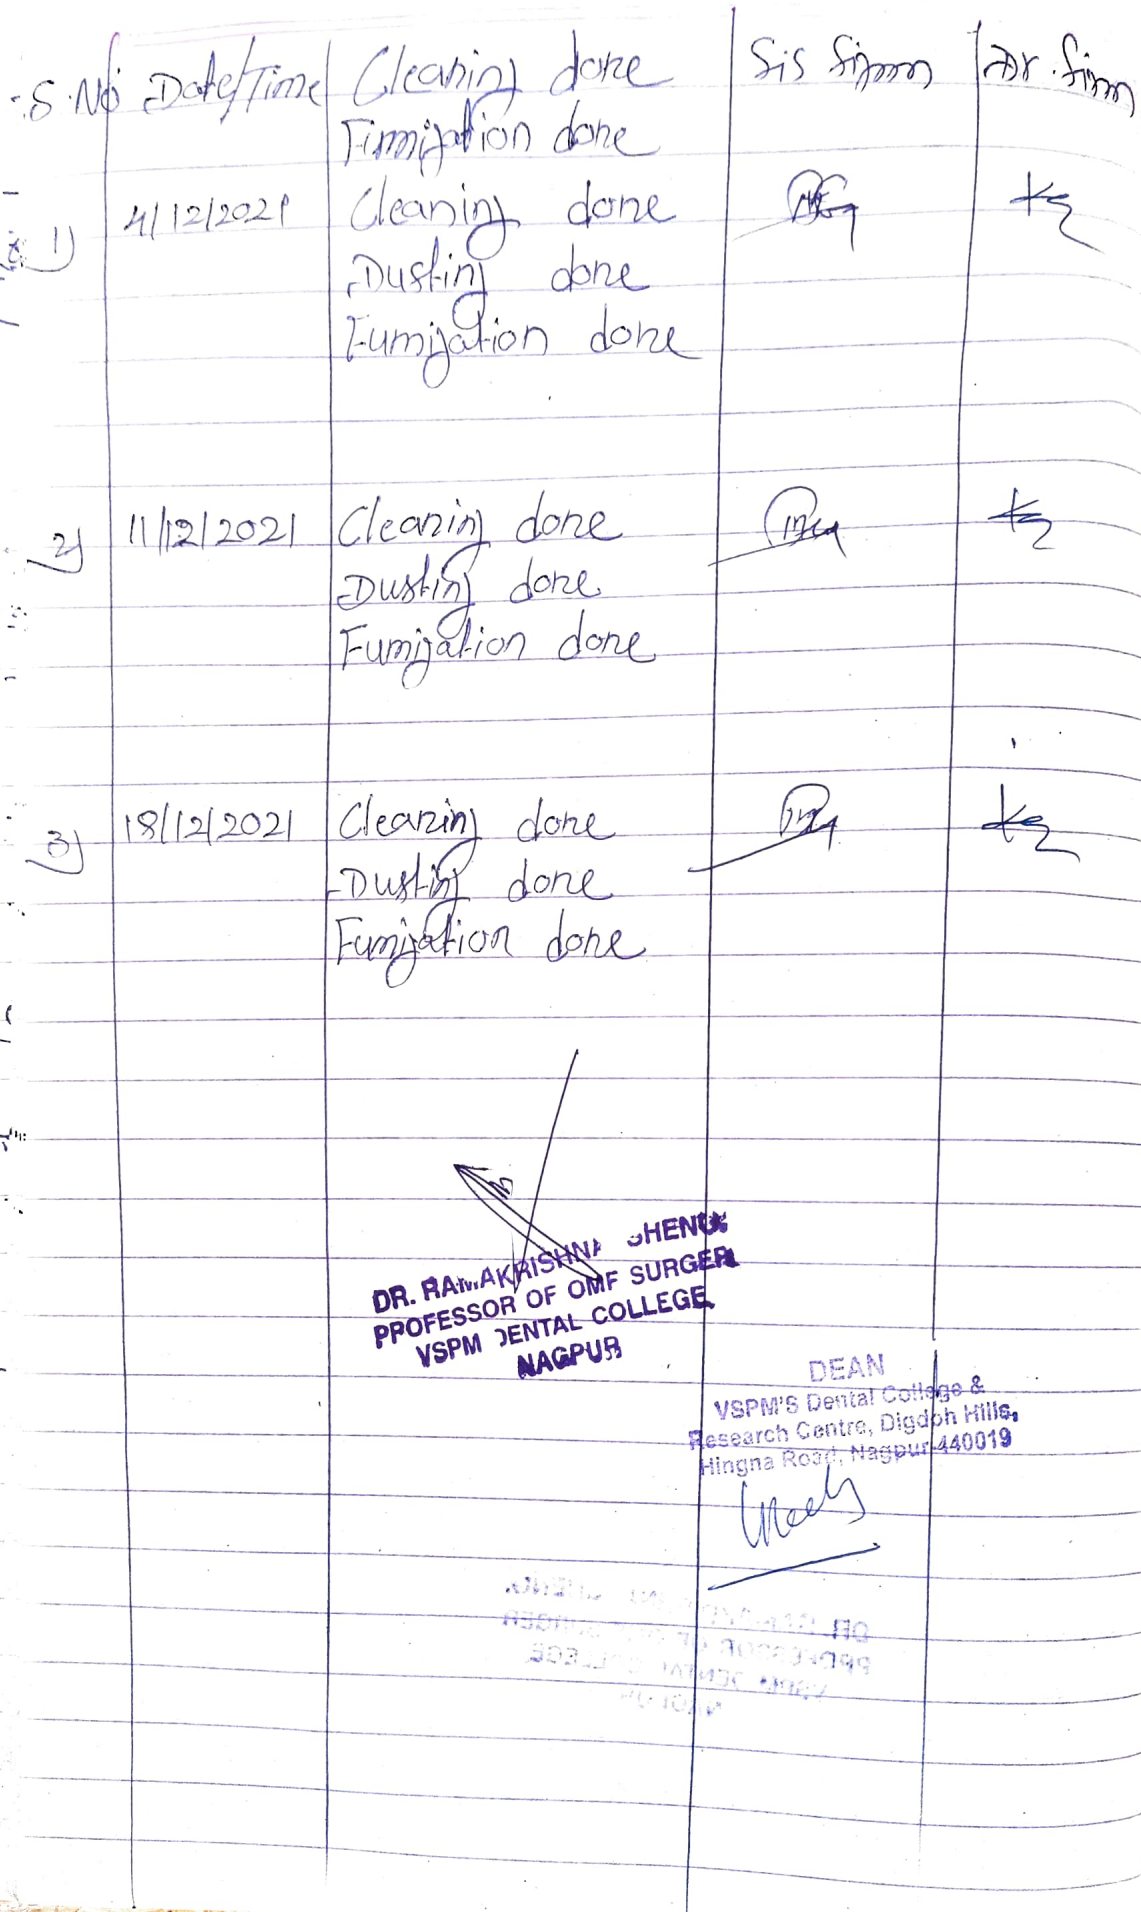 S.No Date/Time Cleaning done Sis Dr.
Fumigation done
1) 4/12/2021 Cleaning done
Dusting done
Fumigation done
2) 11/12/2021 Cleaning done
Dusting done
Fumigation done
3) 18/12/2021 Cleaning done
Dusting done
Fumigation done
DR. RAMAKRISHNA SHENOI
PROFESSOR OF OMF SURGERY
VSPM DENTAL COLLEGE
NAGPUR
DEAN
VSPM'S Dental College &
Research Centre, Digdoh Hills,
Hingna Road, Nagpur-440019